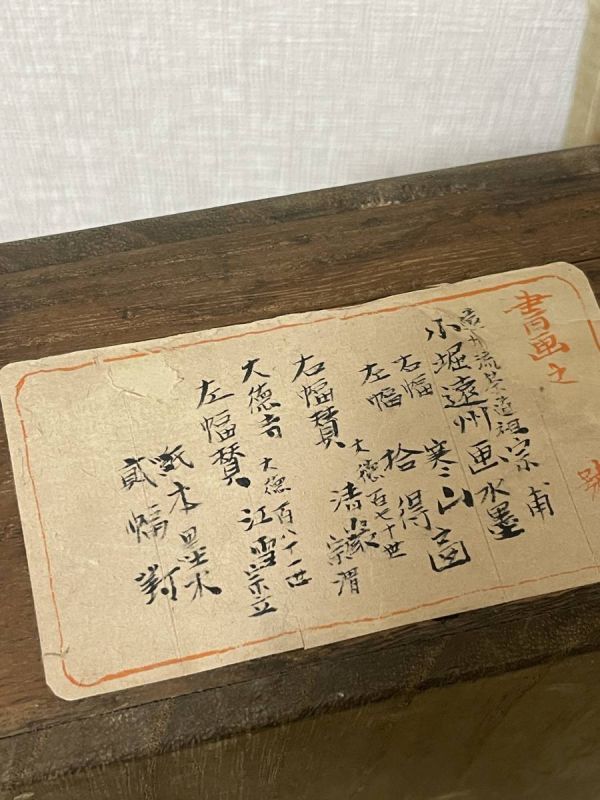 書画之
號
遠州流茶道祖宗甫
小堀遠州画水墨
右幅 寒山画
左幅 拾得
大徳百七十世
右幅賛 清巌宗渭
大徳百八十一世
大徳寺 江雪宗立
左幅賛
紙本墨水
貳幅對